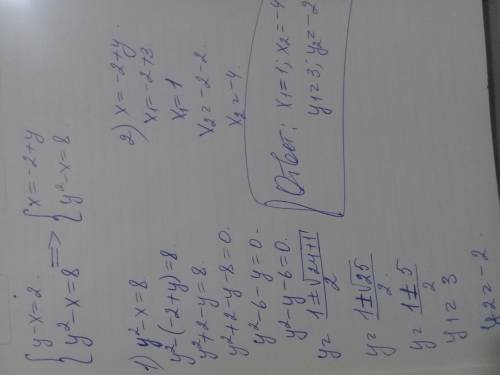 { y-x=2      { x=-2+y
{ y²-x=8 => { y²-x=8
1) y²-x=8
y²-(-2+y)=8
y²+2-y=8
y²+2-y-8=0.
y²-6-y=0.
y²-y-6=0.
y= (1±√(24+1))/2
y= (1±√25)/2
y= (1±5)/2
y1=3
y2=-2
2) x=-2+y.
x1=-2+3
x1=1
x2=-2-2.
x2=-4.
Ответ: x1=1; x2=-4
y1=3; y2=-2